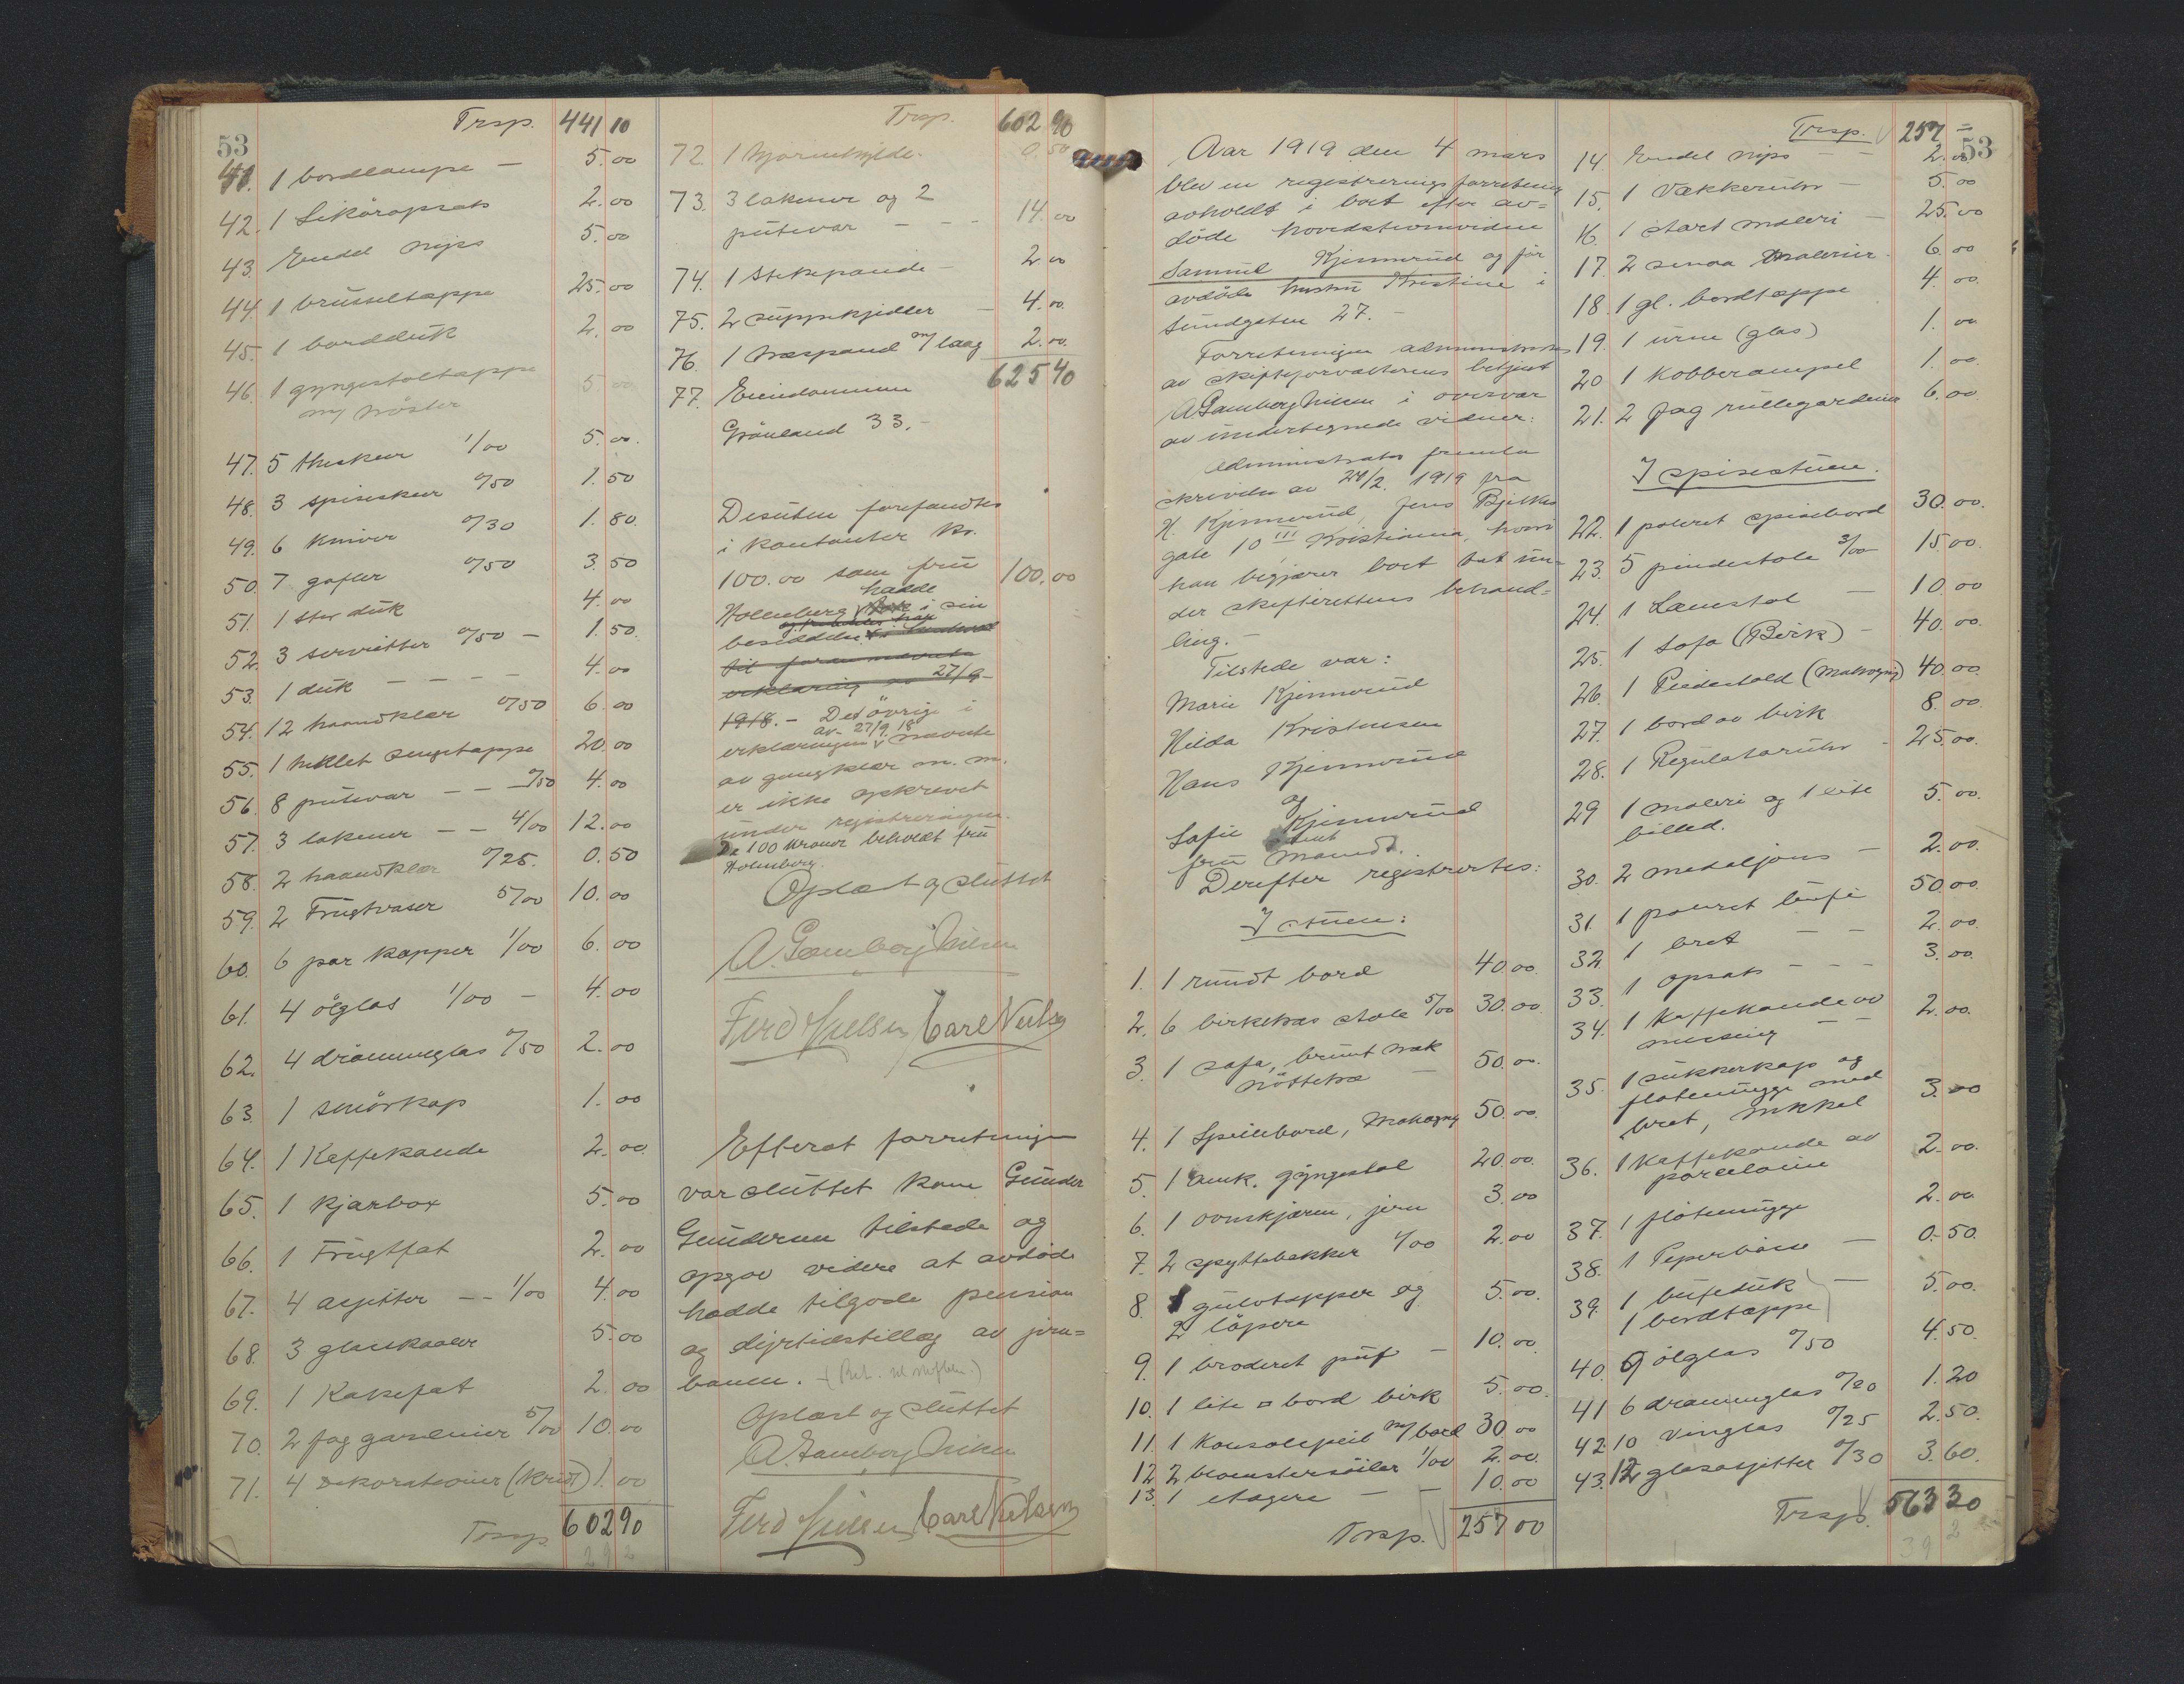 53
Trsp. 441 10
41. 1 bordlampe — 5.00
42. 1 Liköropsats 2.00
43. Endel nips 5.00
44. 1 brüsseltæppe 25.00
45. 1 bordduk 2.00
46. 1 gyngestoltæppe 5.00
m/ mönster
47. 5 theskeer 1/00 5.00.
48. 3 spiseskeer 0/50 1.50
49. 6 kniver 0/30 1.80.
50. 7 gafler 0/50 3.50
51. 1 stor duk 4.00
52. 3 servietter 0/50 — 1.50.
53. 1 duk — — — — 4.00
54. 12 haandklær 0/50 6.00
55. 1 heklet sengetæppe 20.00
56. 8 putevar — — 0/50 4.00
57. 3 lakener — — 4/00 12.00
58. 2 haandklær 0/25. 0.50
59. 2 Frugtvaser 5/00 10.00
60. 6 par kopper 1/00 6.00
61. 4 ölglas 1/00 — 4.00
62. 4 drammeglas 0/50 2.00
63 1 smörkop 1.00
64. 1 Kaffekande 2.00
65. 1 kjærbox 5.00
66. 1 Frugtfat 2.00
67. 4 asjetter — — 1/00 4.00
68. 3 glasskaaler 5.00
69. 1 Kakefat 2.00
70. 2 fag gardiner 5/00 10.00
71. 4 dekorationer (Kridt) 1.00
Trsp. 602 90
Trsp. 602 90
72 1 hjørnehylde. 0.50
73. 3 lakener og 2
putevar — — — 14.00
74. 1 Stekepande — 2.00
75. 2 suppekjedler — 4.00.
76. 1 vaspand m/ laag 2.00.
625 40
77. Eiendommen
Grönland 33.—
Desuten forefandtes
i kontanter kr.
100.00 som fru 100.00
hadde
Holmberg i sin
besiddelse
til foran nævnte
erklæring av 27/9-
1918. — Det övrige i
av 27/9 18
erklæringen nævnte
av gangklær m. m.
er ikke opskrevet
under registreringen.
De 100 kroner beholdt fru
Holmberg.
Oplæst og sluttet
A. Gamborg Nilsen
Ferd Nielsen Carl Nielsen
Efterat forretningen
var sluttet kom Gunder
Gundersen tilstede og
opgav videre at avdöde
hadde tilgode pension
og dyrtidstillæg av jern=
banen.
Oplæst og sluttet
A. Gamborg Nilsen
Ferd Nielsen Carl Nielsen
Aar 1919 den 4 mars
blev en registreringsforretning
avholdt i boet efter av=
döde hovedstionsvidne
Samuel Kjennerud og før
avdöde hustru Kristine i
Sundgaten 27. —
Forretningen administrertes
av skifteforvalterens betjent
A. Gamborg Nilsen i overvær
av undertegnede vidner:
Administrator fremla
skrivelse av 24/2. 1919 fra
H. Kjennerud, Jens Bjelkes
gate 10 III, Kristiania, hvori
han begjærer boet tat un=
der skifterettens behand=
ling. —
Tilstede var:
Marie Kjennerud
Hilda Kristensen
Hans Kjennerud
og
Sofie Kjennerud
samt
fru Mamdt.
Derefter registrertes:
I stuen:
1. 1 rundt bord 40.00.
2. 6 birketræs stole 5/00 30.00.
3. 1 sofa, brunt træk
nöttetræ — 50.00.
4. 1 Speilebord, Mahogny 50.00.
5. 1 amk. gyngestol 20.00.
6. 1 ovnskjærm, jern 3.00
7. 2 spyttebakker 1/00 2.00
8. 1 gulvtæpper og 5.00.
2 löpere
9. 1 broderet puf — 10.00.
10. 1 lite bord birk 5.00.
11. 1 Konsolspeil m/bord 30.00
12 2 blomstersöiler 1/00 2.00.
13. 1 etagere — — 10.00
Trsp. 257 00
53
Trsp. 257 =
14. Endel nips — 2.00.
15. 1 Vækkerur — 5.00
16. 1 stort maleri — 25.00
17. 2 smaa malerier. 6.00
18. 1 gl. bordtæppe 4.00.
19. 1 urne (glas) 1.00
20 1 Kobberampel 1.00.
21. 2 fag rullegardiner 6.00.
I spisestuen.
22. 1 poleret spisebord 30.00.
23. 5 pindestole 3/00 15.00.
24. 1 Lænestol — 10.00
25. 1 Sofa (Birk) — 40.00.
26. 1 Piedestald (Mahogny) 40.00.
27. 1 bord av birk 8.00.
28. 1 Regulatorur — 25.00.
29 1 maleri og 1 lite 5.00.
billed.
30. 2 medaljons — 2.00.
31. 1 poleret büfe 50.00.
32 1 bret — — 2.00.
33. 1 opsats — — — 3.00.
34. 1 Kaffekande av
messing — — 2.00.
35. 1 sukkerkop og
flötemugge med
bret, nikkel 3.00
36. 1 kaffekande av
porcelaine 2.00.
37. 1 flötemugge 2.00
38. 1 Peperbösse — 0.50.
39. 1 bufeduk — 5.00.
1 bordtæppe
40. 9 ölglas 0/50 4.50.
41 6 drammeglas 0/20 1.20
42. 10 Vinglas 0/25 2.50.
43. 12 glasasjetter 0/30 3.60.
Trsp. 563 30